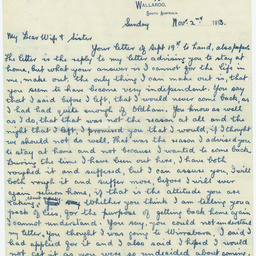 WALLAROO,
SOUTH AUSTRALIA
Sunday Nov. 2nd 1913.
My Dear Wife & Sister
Your letter of Sept 19th to hand, also papers
The letter is the reply to my letter advising you to stay at
home, but what your answer is I cannot for the life in
me, make out. The only thing I can make out is, that
you seem to have become very independent. You say
that I said before I left, that I would never come back, as
I had quite enough of Oldham. You know as well
as I do, that that was not the reason at all and the
night that I left I promised you that I would, if I thought
we should not do well. That was the reason I advised you
to stay at home and not because I wanted to come back.
During the time I have been out here, I have both
roughed it and suffered, but I can assure you, I will
both rough it and suffer more, before I will ever
again return home, if that is the attitude you are
taking. Whether you think I am telling you a
pack of lies, for the purpose of getting back home again
I cannot understand. You say, you could not understand
my letter, you thought I was going to Wirrabara, I said I
had applied for it and I also said I hoped I would
not get it as you were so undecided about coming.